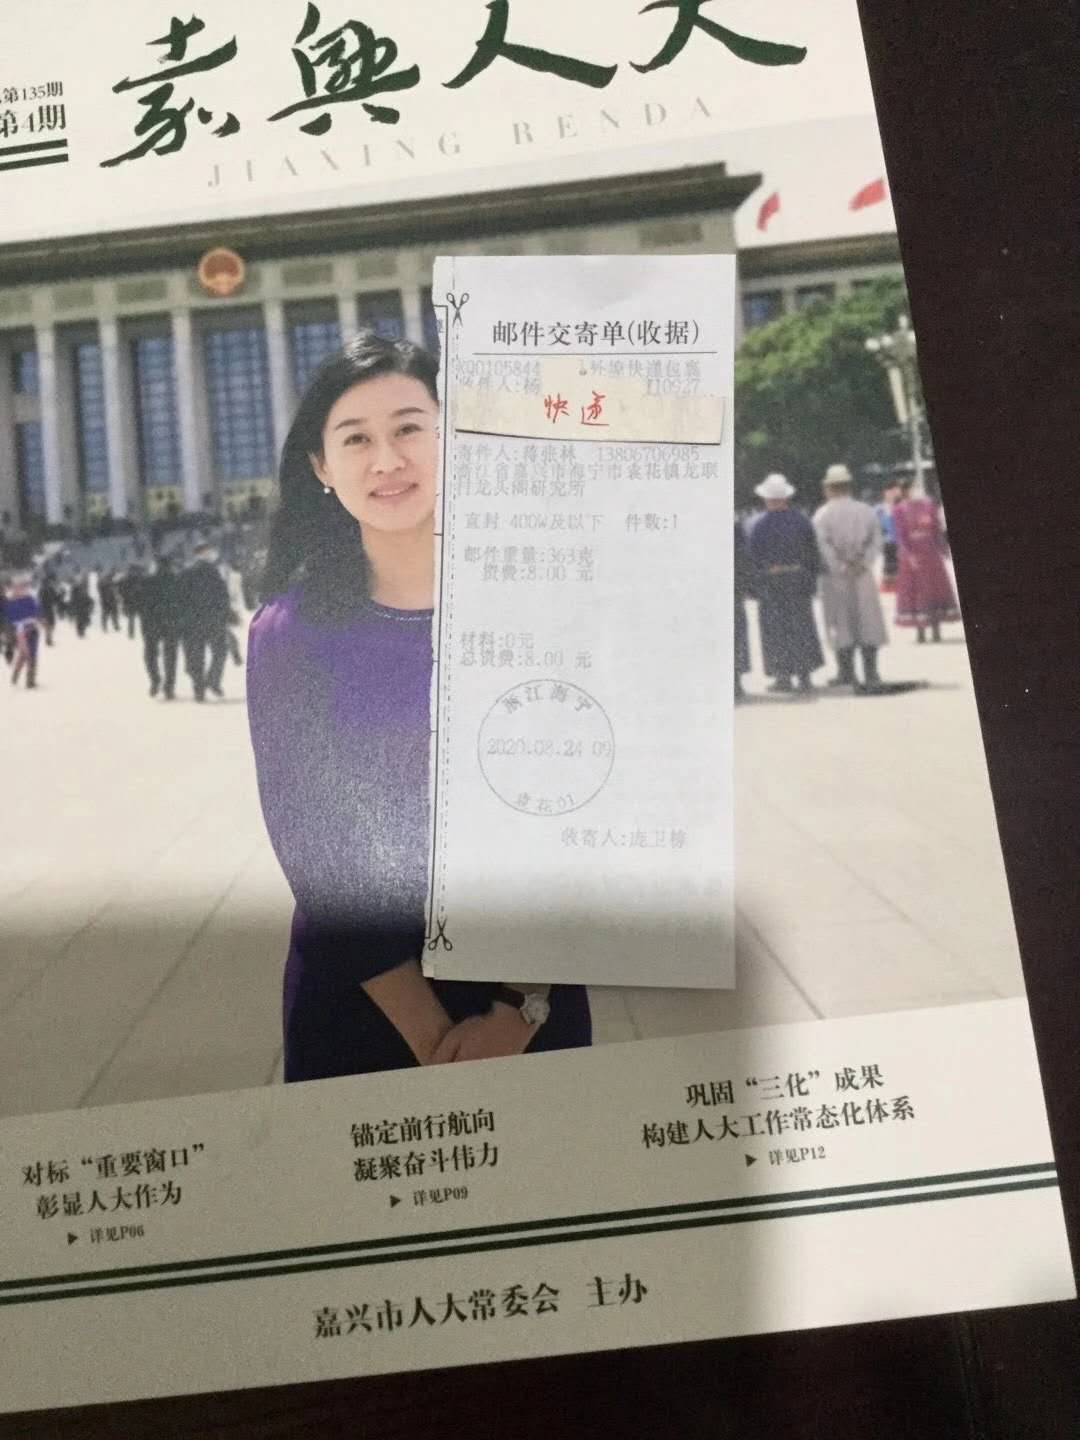 第135期
第4期
嘉興人大
JIAXING RENDA
邮件交寄单(收据)
快递包裹
快递
寄件人:蒋张林 13806706985
浙江省嘉兴市海宁市袁花镇龙联
龙头阁研究所
直封 400W及以下 件数:1
邮件重量:363克
资费:8.00 元
材料:0元
总资费:8.00 元
浙江海宁
2020.08.24 09
袁花01
收寄人:庞卫榜
对标“重要窗口”
彰显人大作为
▶ 详见P06
锚定前行航向
凝聚奋斗伟力
▶ 详见P09
巩固“三化”成果
构建人大工作常态化体系
▶ 详见P12
嘉兴市人大常委会 主办